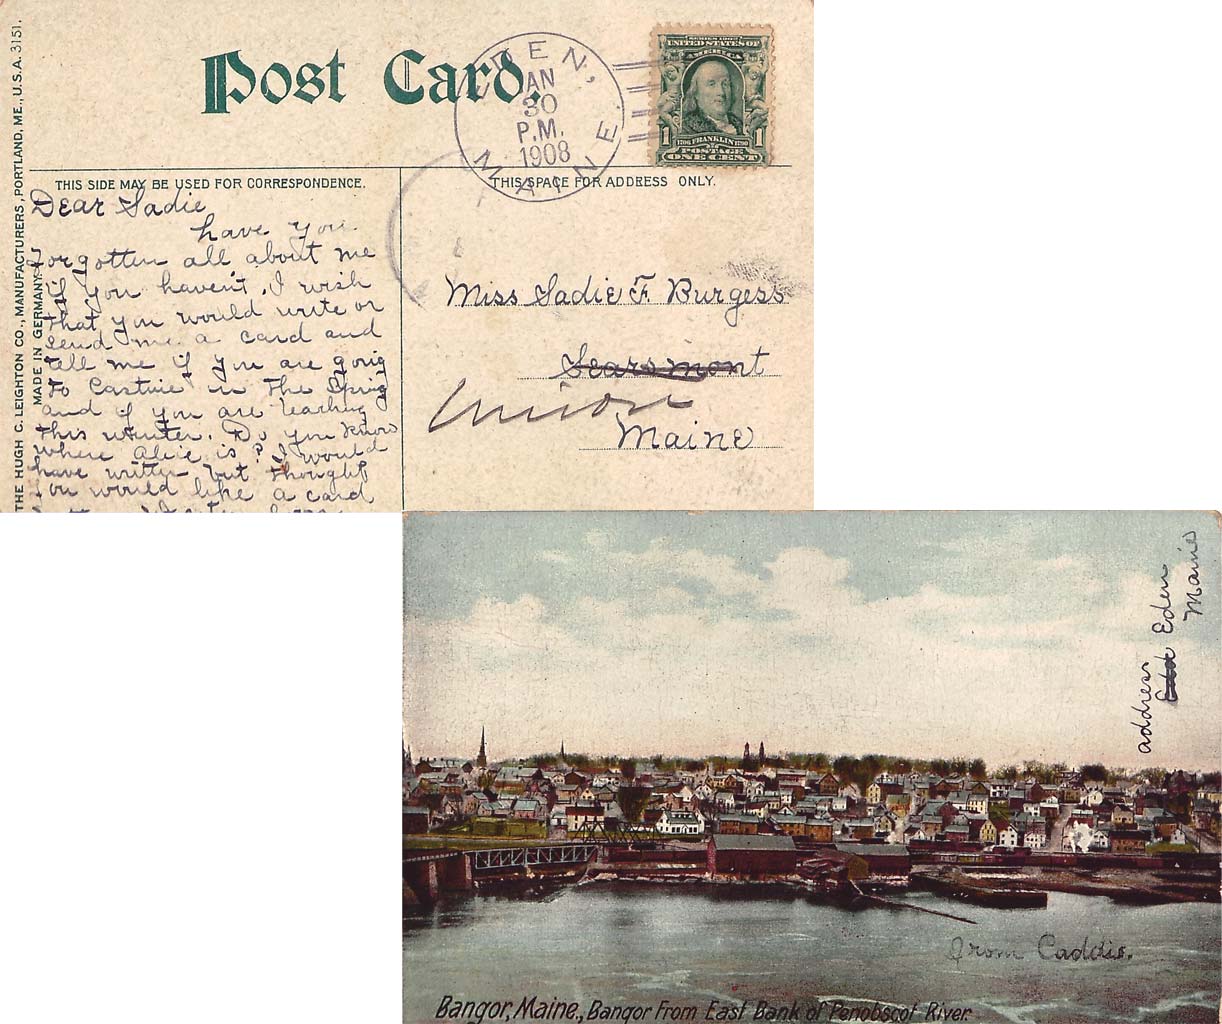 THE HUGH C. LEIGHTON CO., MANUFACTURERS, PORTLAND, ME., U.S.A. 3151.
MADE IN GERMANY
Post Card.
EDEN,
JAN
30
P.M.
1908
MAINE.
SERIES 1902
UNITED STATES OF
AMERICA
1 1706 FRANKLIN 1790 1
POSTAGE
ONE CENT
THIS SIDE MAY BE USED FOR CORRESPONDENCE.
Dear Sadie
have you
Forgotten all about me
if you haven't, I wish
that you would write or
send me a card and
tell me if you are going
to Castine in the Spring
and if you are teaching
this winter. Do you know
where Alice is? I would
have written but thought
you would like a card
THIS SPACE FOR ADDRESS ONLY.
Miss Sadie F. Burgess
Searsmont
Union
Maine
address
Eden
Maine
From Caddie.
Bangor, Maine., Bangor From East Bank of Penobscot River.